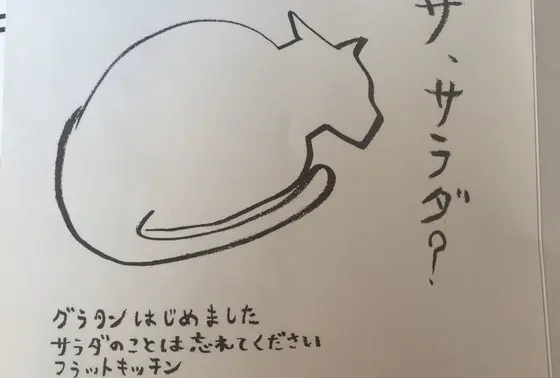 サ、サラダ?
グラタンはじめました
サラダのことは忘れてください
フラットキッチン